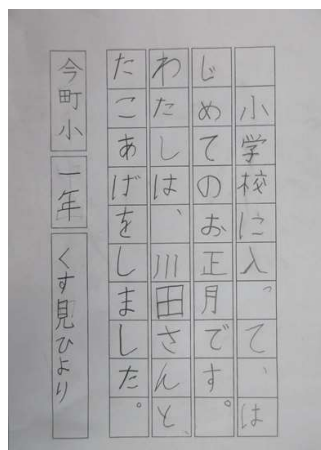 小学校に入って、は
じめてのお正月です。
わたしは、川田さんと、
たこあげをしました。
今町小 一年 くす見ひより